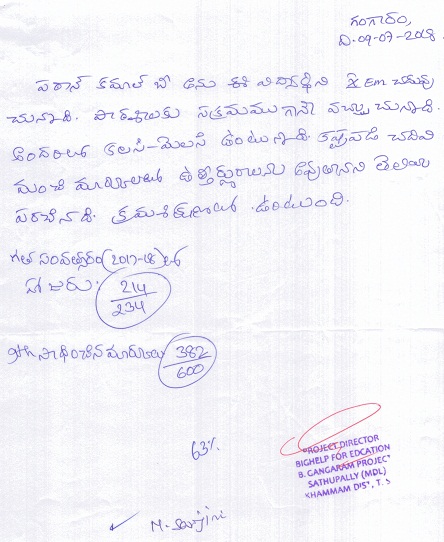 గంగారం,
ది.09-07-2018.
పఠాన్ కమాల్ బీ అను ఈ విద్యార్థిని X Em చదువు
చున్నాది. పాఠశాలకు సక్రమముగానే వచ్చుచున్నాది.
అందరితో కలసి-మెలసి ఉంటున్నాది. కష్టపడి చదివి
మంచి మార్కులతో ఉత్తీర్ణురాలును అవుతానని తెలియ
పరచినాది. క్రమశిక్షణతో ఉంటుంది.
గత సంవత్సరం(2017-18)లో
హాజరు: 214/234
9th సాధించిన మార్కులు 382/600
63%
PROJECT DIRECTOR
BIGHELP FOR EDCATION
B. GANGARAM PROJECT
SATHUPALLY (MDL)
KHAMMAM DIST, T.S
M. Sarojini